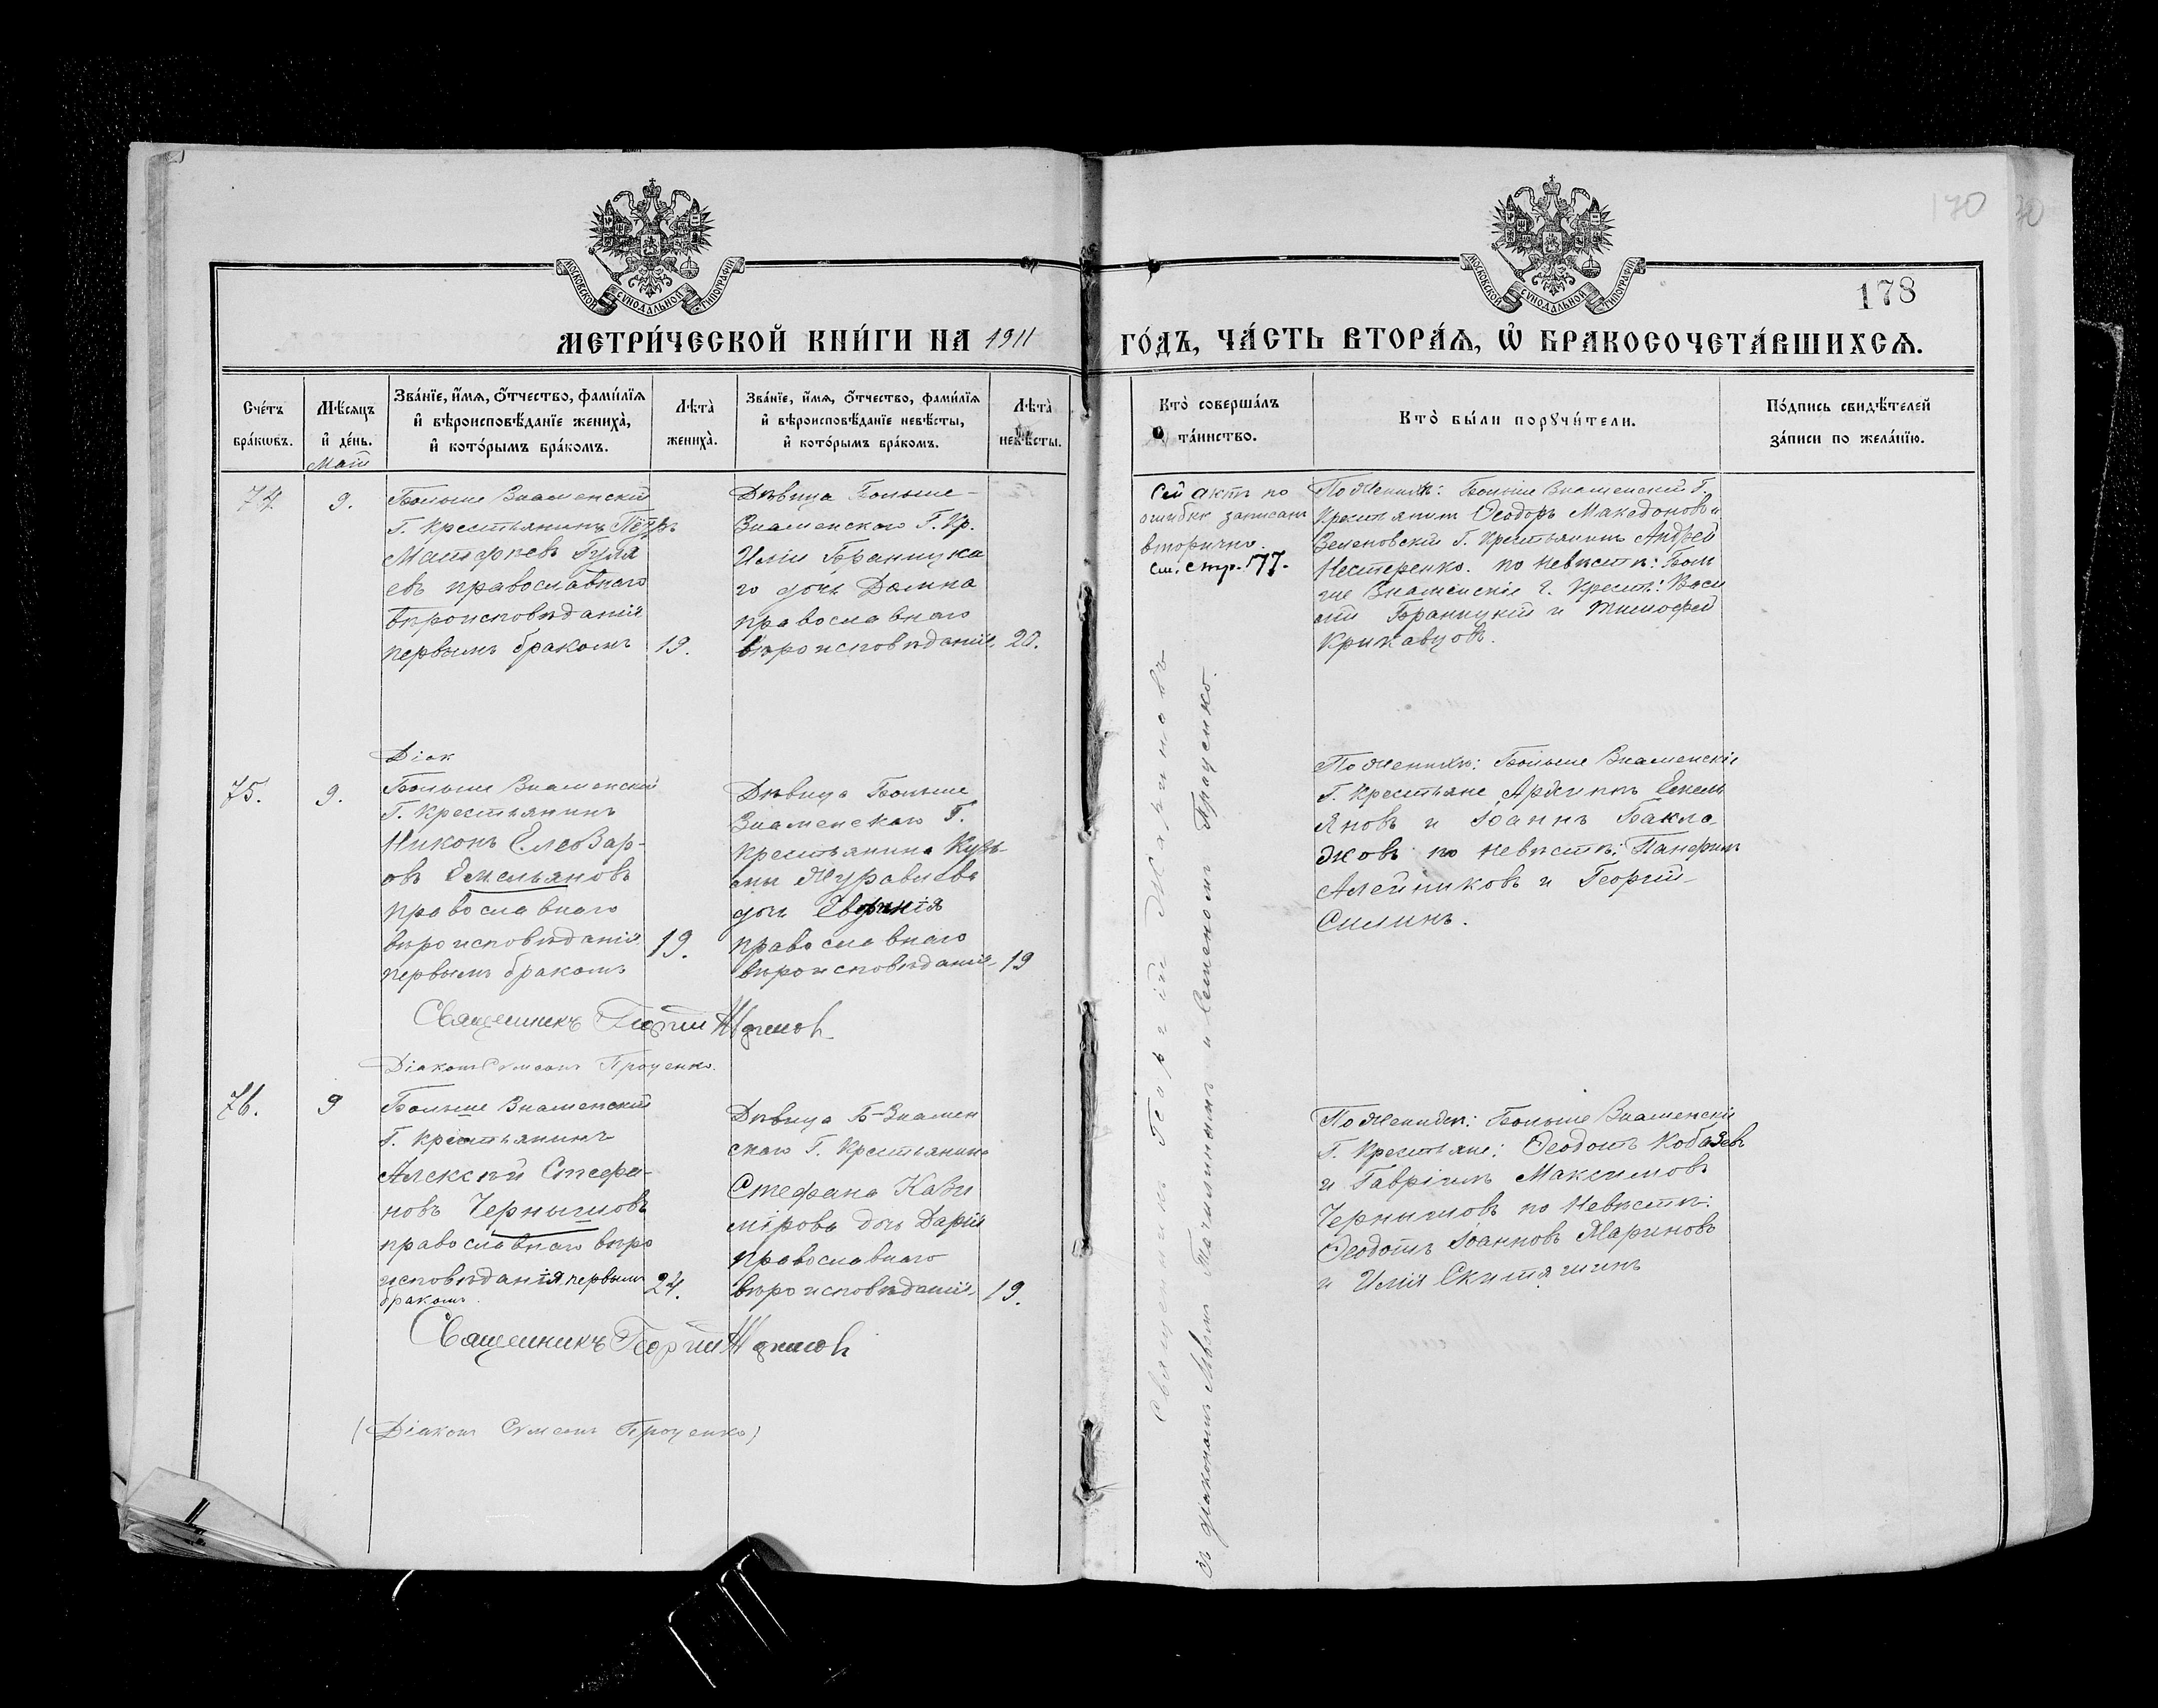 170
70
МОСКОВСКОЙ СѴНОДАЛЬНОЙ ТИПОГРАФІИ
МОСКОВСКОЙ СѴНОДАЛЬНОЙ ТИПОГРАФІИ
178
МЕТРИ́ЧЕСКОЙ КНИ́ГИ НА 1911
ГО́ДЪ, ЧА́СТЬ ВТОРА́Ѧ, Ѽ БРАКОСОЧЕТА́ВШИХСѦ.
Сче́тъ
бра́кѡвъ.
Мѣ́сѧцъ
и҆ де́нь.
Май
Зва́нїе, и҆́мѧ, ѻ҆́тчество, фами́лїѧ
и҆ вѣроисповѣ́данїе жениха̀,
и҆ кото́рымъ бра́комъ.
Лѣта̀
жениха̀.
Зва́нїе, и҆́мѧ, ѻ҆́тчество, фами́лїѧ
и҆ вѣроисповѣ́данїе невѣ́сты,
и҆ кото́рымъ бра́комъ.
Лѣта̀
невѣ́сты.
Кто̀ соверша́лъ
та́инство.
Кто̀ бы́ли порꙋчи́тели.
По́дпись свидѣ́телей
за́писи по жела́нїю.
74.
9.
Больше Знаменскій
Г. крестьянинъ Петръ
Матфеевъ Гуля
евъ православнаго
вѣроисповѣданія
первымъ бракомъ
19.
Дѣвица Больше-
Знаменскаго Г. Кр.
Иліи Браницка
го дочь Домна
православнаго
вѣроисповѣданія.
20.
Сей актъ по
ошибкѣ записанъ
вторично.
см. стр. 177.
По Женихѣ: Больше Знаменскій Г.
Крестьянинъ Ѳеодоръ Македоновъ и
Г. Крестьянинъ Андрей
Нестеренко. по невѣстѣ: Боль
ше Знаменскіе Г. Крест: Васи
лій Браницкій и Тимофей
Крикавцовъ.
Діак
75.
9.
Больше Знаменскій
Г. Крестьянинъ
Никонъ Елеазар-
овъ Емельяновъ
православнаго
вѣроисповѣданія
первымъ бракомъ
19.
Дѣвица Больше
Знаменскаго Г.
крестьянина Кузь-
мы Журавлева
дочь Евфимія
православнаго
вѣроисповѣданія
19
По Женихѣ: Больше Знаменскіе
Г. Крестьяне Емель
яновъ и Іоаннъ Бакла-
жовъ по невѣстѣ: Панфилъ
Алейниковъ и Георгій
Силинъ.
Священникъ Георгій
Діаконъ Сѵмеонъ Проценко.
76.
9
Больше Знаменскій
Г. крестьянинъ
Алексѣй Стефа-
новъ Чернышовъ
православнаго вѣро
исповѣданія первымъ
бракомъ.
24.
Дѣвица Б-Знамен
скаго Г. Крестьянина
Стефана Кази
мірова дочь Дарія
православнаго
вѣроисповѣданія.
19.
По Женихѣ: Больше Знаменскіе
Г. Крестьяне: Ѳеодотъ Кобазевъ
и Гавріилъ Максимовъ
Чернышовъ по Невѣстѣ:
Ѳеодотъ Іоанновъ Мариновъ
и Илія
Священникъ Георгій
(Діаконъ Сѵмеонъ Проценко)
Священникъ Георгій
съ діакономъ и Сѵмеономъ Проценко.